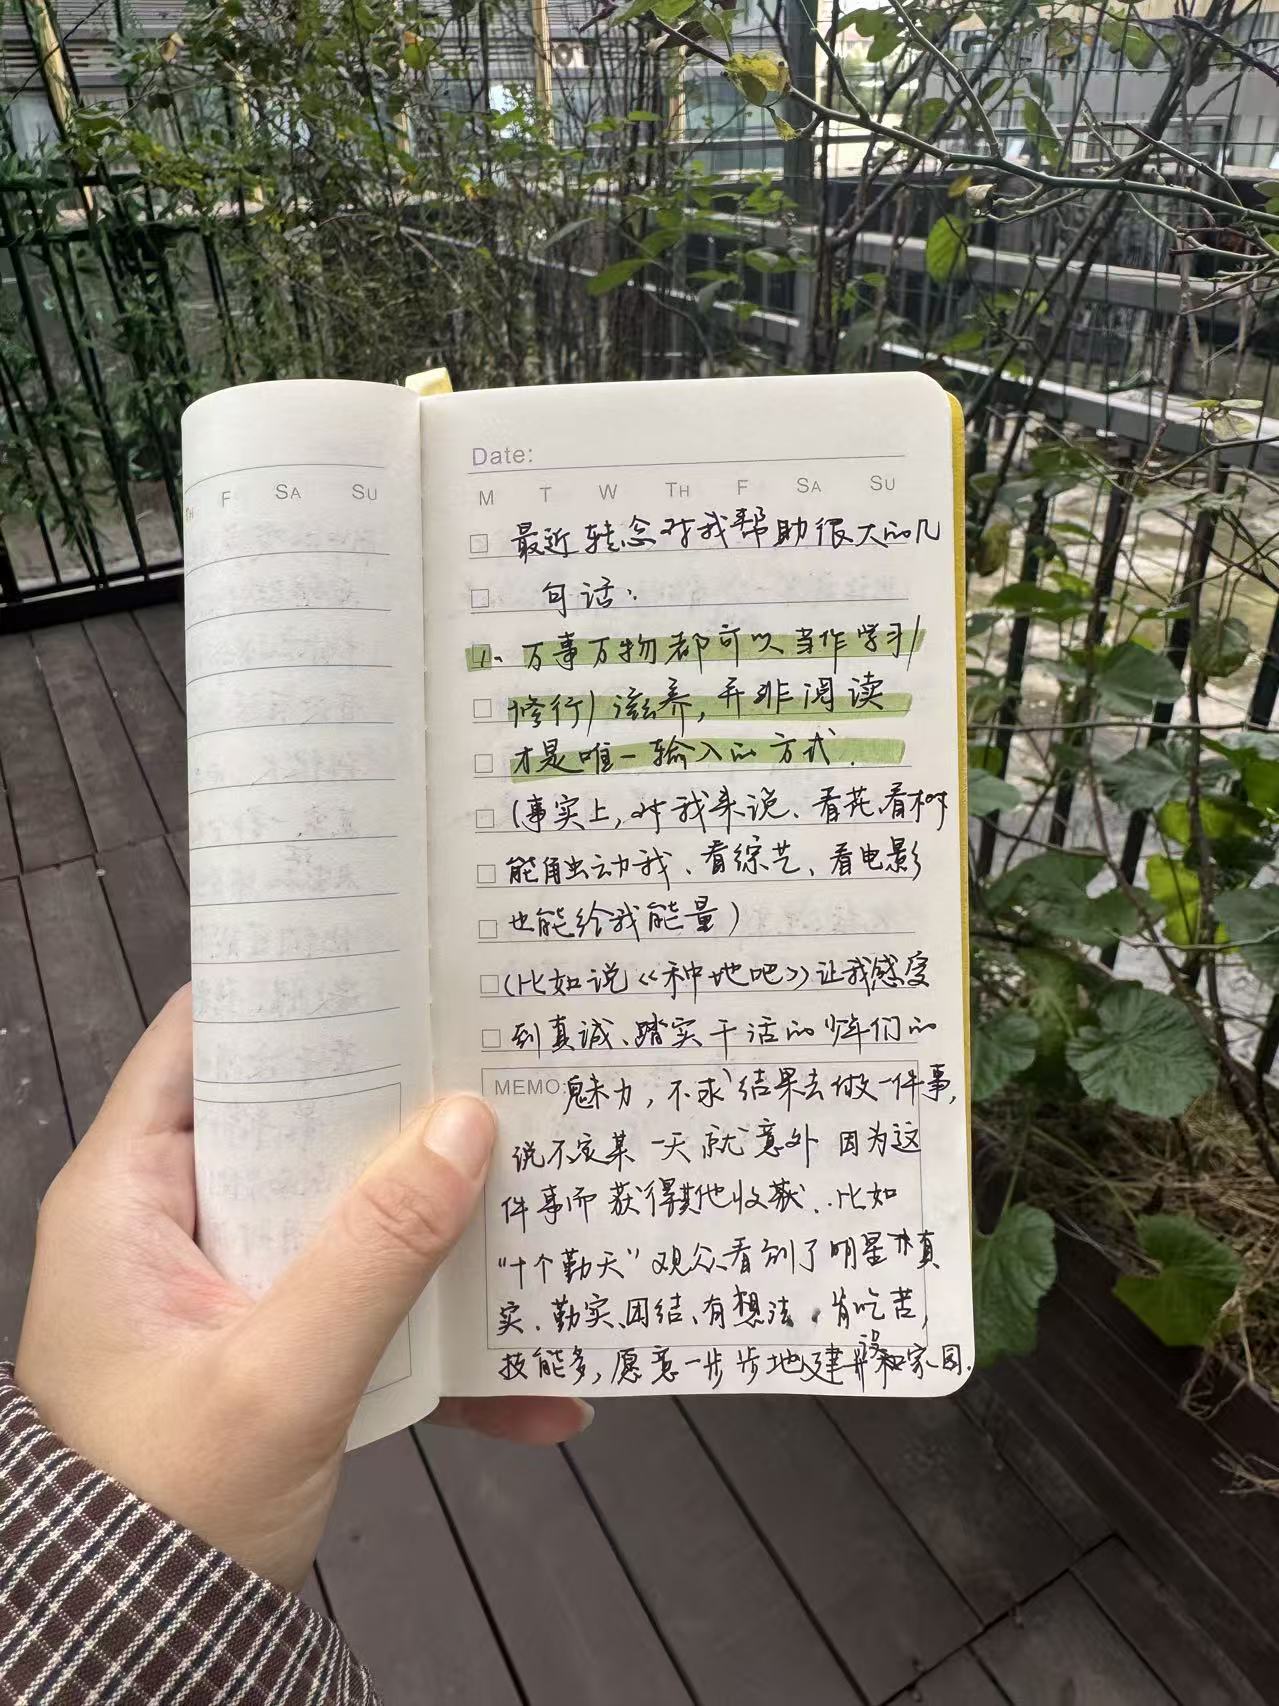 TH F SA SU
Date:
M T W TH F SA SU
最近转念对我帮助很大的几
句话：
1、万事万物都可以当作学习/
修行/滋养，并非阅读
才是唯一输入的方式.
(事实上，对我来说、看花、看树
能触动我、看综艺、看电影
也能给我能量)
(比如说《种地吧》让我感受
到真诚、踏实干活的少年们的
MEMO: 魅力，不求结果去做一件事，
说不定某一天就意外因为这
件事而获得其他收获. 比如
“十个勤天”观众看到了明星林真
实、勤实、团结、有想法，肯吃苦，
技能多，愿意一步步地建设和家园.